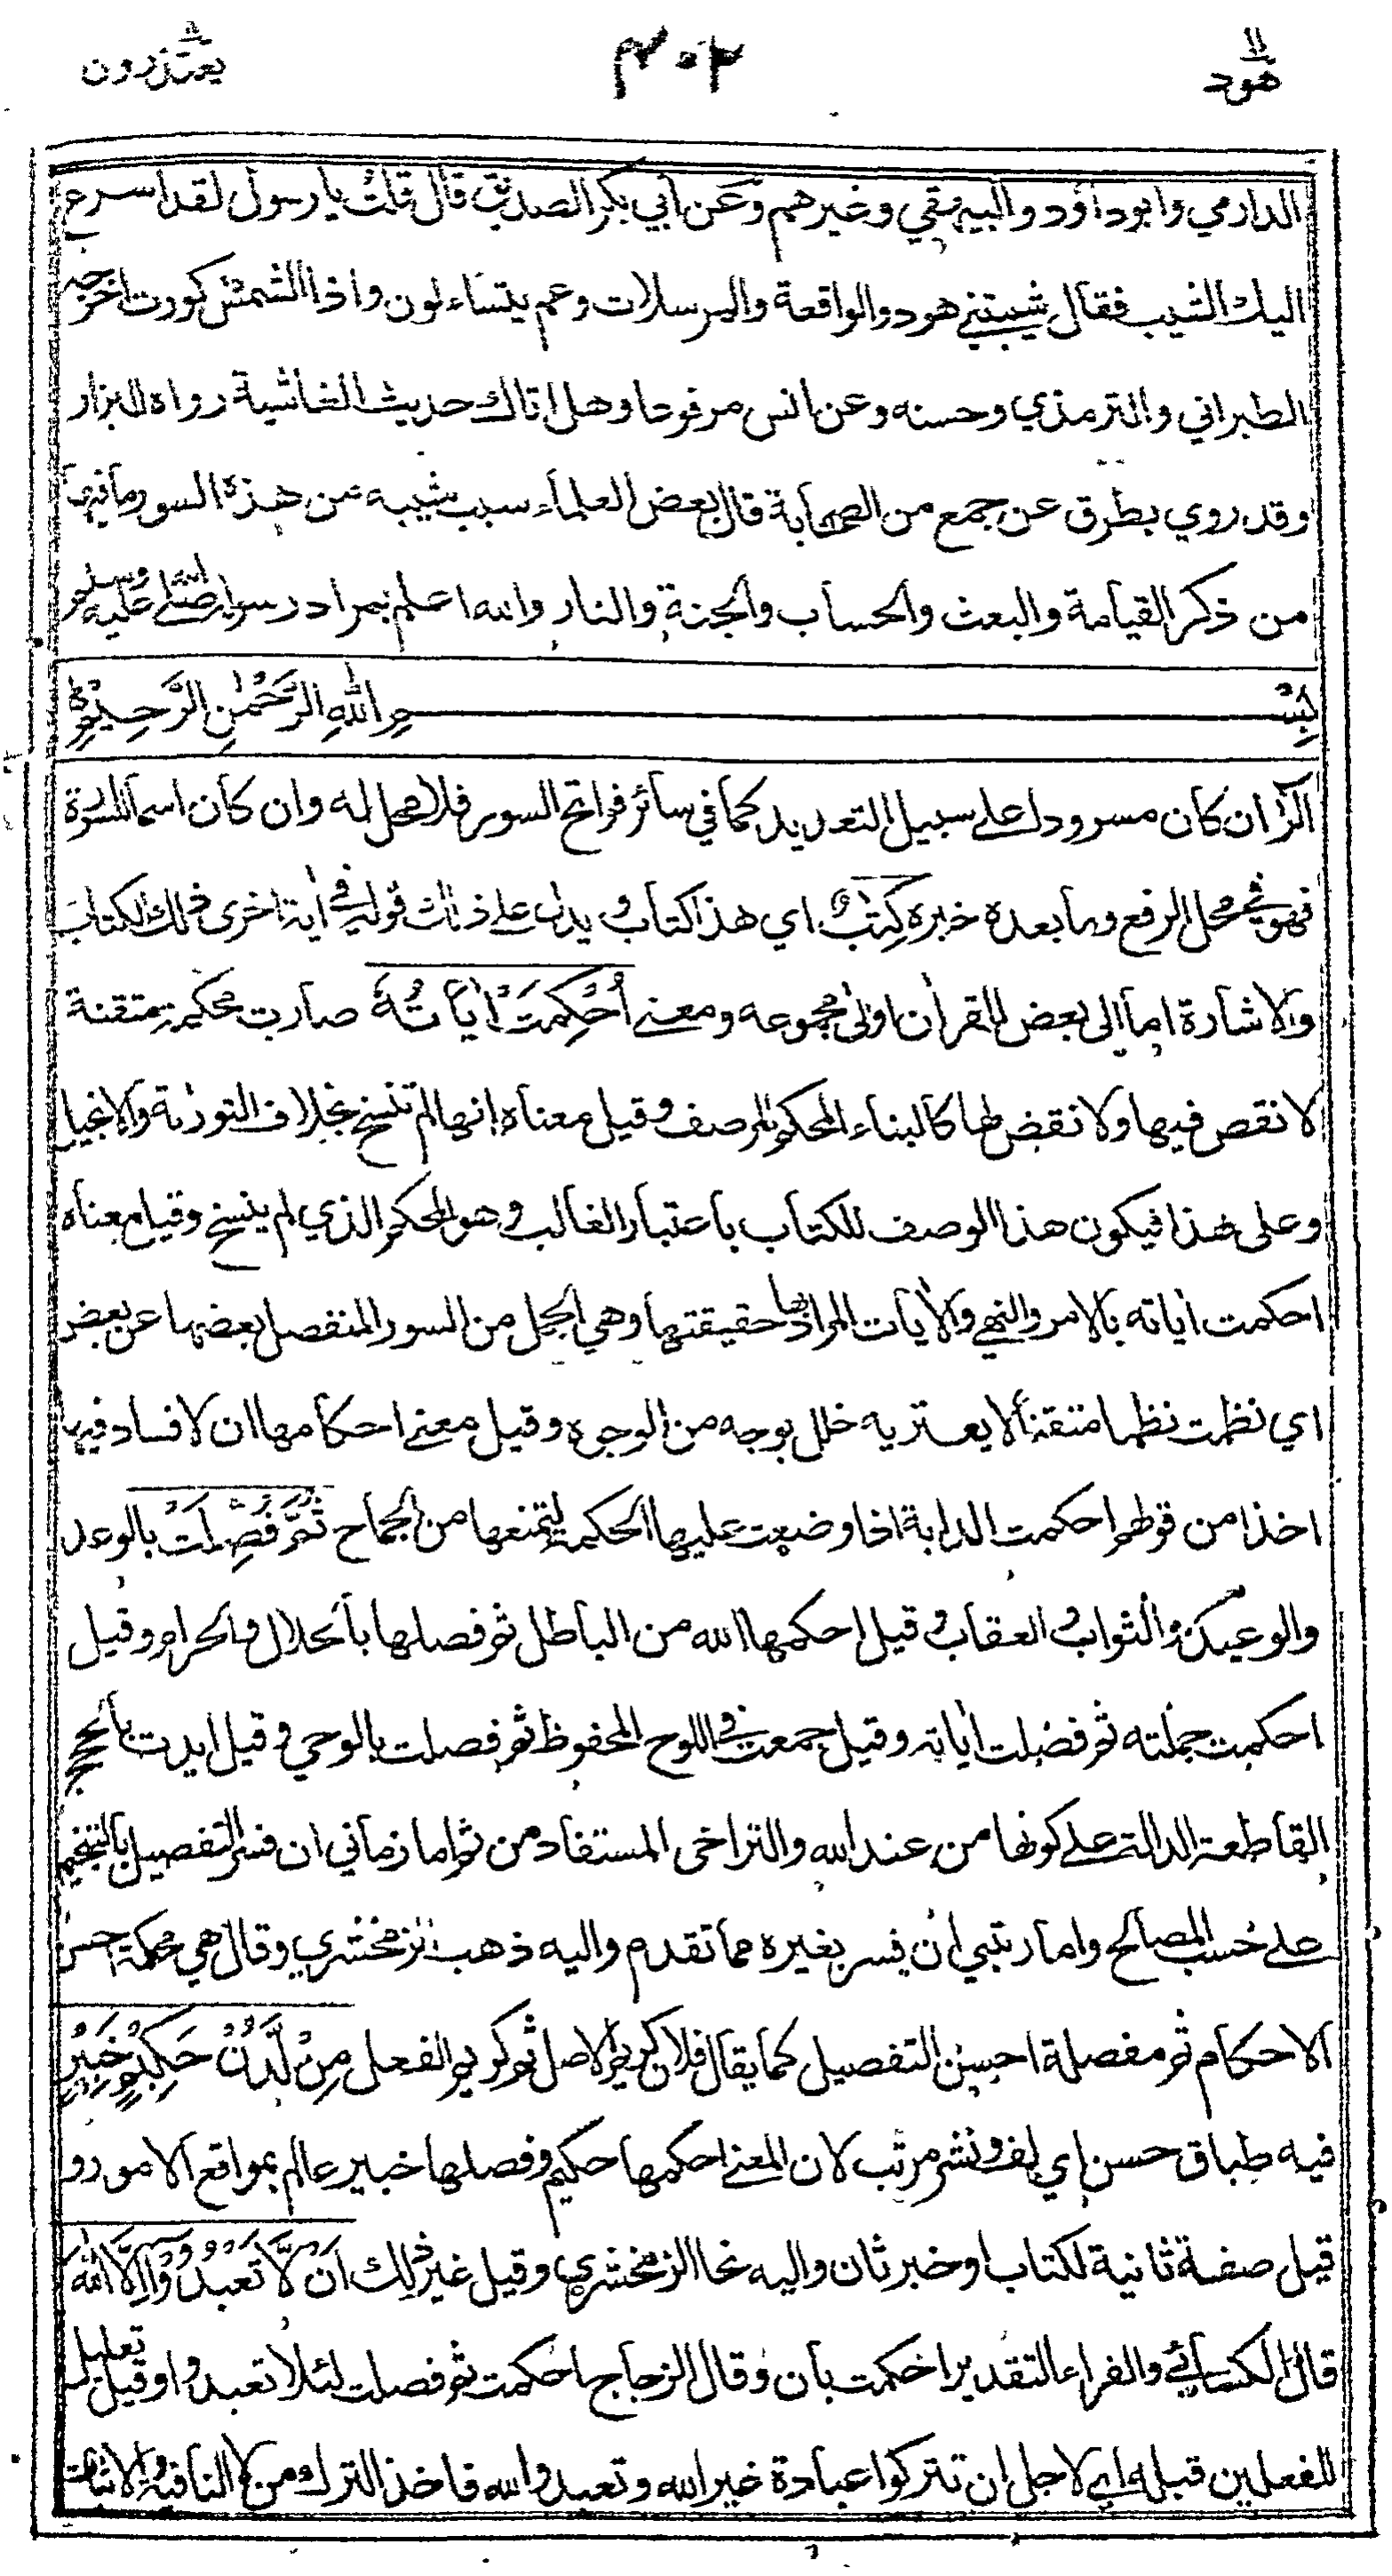 هود ١١
٣٠٢
يعتذرون ١١
الدارمي وابو داؤد والبيهقي وغيرهم وعن أبي بكر الصديق قال قلت يا رسول لقد اسرع
اليك الشيب فقال شيبتني هود والواقعة والمرسلات وعم يتساءلون واذا الشمس كورت اخرجه
الطبراني والترمذي وحسنه وعن انس مرفوعا وهل اتاك حديث الغاشية رواه البزار
وقد روي بطرق عن جمع من الصحابة قال بعض العلماء سبب شيبه من هذه السور ما فيها
من ذكر القيامة والبعث والحساب والجنة والنار والله اعلم بمراد رسوله صلى الله عليه وسلم
بِسْمِ اللهِ الرَّحْمٰنِ الرَّحِيْمِ
الٓرٰ ان كان مسرودا على سبيل التعديد كما في سائر فواتح السور فلا محل له وان كان اسما للسورة
فهو في محل الرفع وما بعده خبره كِتٰبٌ اي هذا كتاب ويدل على ذلك قوله في اية اخرى ذلك الكتاب
والاشارة اما الى بعض القرأن او الى مجموعه ومعنى اُحْكِمَتْ اٰيَاتُهٗ صارت محكمة متقنة
لا نقص فيها ولا نقض لها كالبناء المحكم المرصف وقيل معناه إنها لم تنسخ بخلاف التورٰىة والانجيل
وعلى هذا فيكون هذا الوصف للكتاب باعتبار الغالب وهو المحكم الذي لم ينسخ وقيل معناه
احكمت أياته بالامر والنهي والأيات المراد بها حقيقتها وهي الجمل من السور المنفصل بعضها عن بعض
اي نظمت نظما متقنا لا يعتريه خلل بوجه من الوجوه وقيل معنى احكامها ان لا فساد فيها
اخذا من قولهم احكمت الدابة اذا وضعت عليها الحكمة لتمنعها من الجماح ثُمَّ فُصِّلَتْ بالوعد
والوعيد والثواب والعقاب وقيل احكمها الله من الباطل ثم فصلها بالحلال والحرام وقيل
احكمت جملته ثم فصلت أياته وقيل جمعت في اللوح المحفوظ ثم فصلت بالوحي وقيل ايدت بالحجج
القاطعة الدالة على كونها من عند الله والتراخى المستفاد من ثم اما زماني ان فسر التفصيل بالتنجيم
على حسب المصالح واما رتبي ان فيسر بغيره مما تقدم واليه ذهب الزمخشري وقال هي محكمة احسن
الاحكام ثم مفصلة احسن التفصيل كما يقال فلان كريم الاصل ثم كريم الفعل مِنْ لَّدُنْ حَكِيْمٍ خَبِيْرٍ
فيه طباق حسن اي لف ونشر مرتب لان المعنى احكمها حكيم وفصلها خبير عالم بمواقع الامور و
قيل صفة ثانية لكتاب او خبر ثان واليه نحا الزمخشري وقيل غير ذلك اَنْ لَّا تَعْبُدُوْٓا اِلَّا اللّٰهَ
قال الكسائي والفراء التقدير احكمت بأن وقال الزجاج احكمت ثم فصلت لئلا تعبدوا وقيل تعليل
للفعلين قبله اي لاجل ان تتركوا عبادة غير الله وتعبدوا الله فاخذ الترك من لا النافية والاثبات